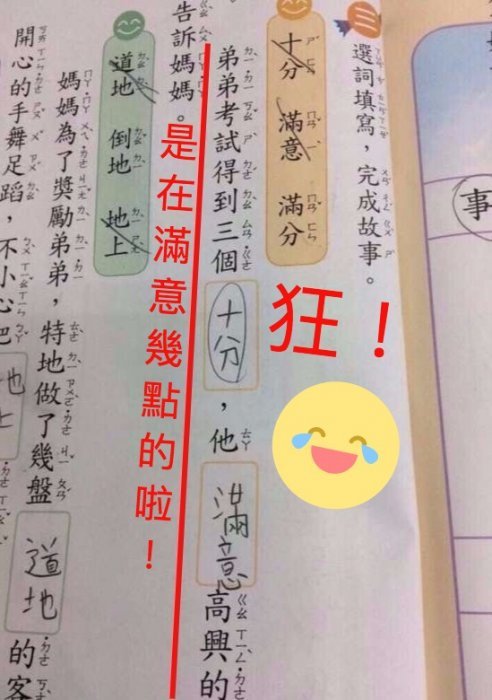 事
三
選詞填寫，完成故事。
十分 滿意 滿分
狂！
弟弟考試得到三個十分，他滿意高興的
告訴媽媽。
是在滿意幾點的啦！
道地 倒地 地上
媽媽為了獎勵弟弟，特地做了幾盤道地的客
開心的手舞足蹈，不小心把地上